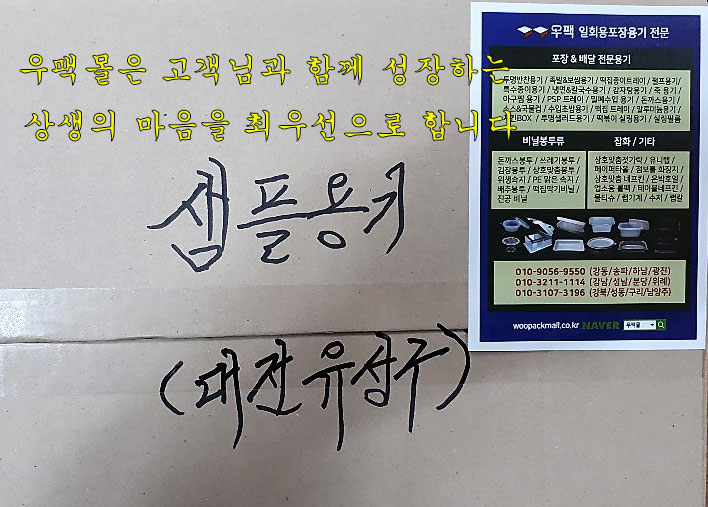 우팩몰은 고객님과 함께 성장하는
상생의 마음을 최우선으로 합니다
샘플용기
(대전유성구)
우팩 일회용포장용기 전문
포장 & 배달 전문용기
투명반찬용기 / 족발&보쌈용기 / 떡집종이트레이 / 펄프용기/
특수종이용기 / 냉면&칼국수용기 / 감자탕용기 / 죽 용기 /
아구찜 용기 / PSP 트레이 / 밀폐수입 용기 / 돈까스용기 /
소스&국물컵 / 수입초밥용기 / 떡집 트레이 / 알루미늄용기 /
BOX / 투명샐러드용기 / 떡볶이 실링용기 / 실링필름
비닐봉투류
돈까스봉투 / 쓰레기봉투 /
김장봉투 / 상호맞춤봉투 /
위생속지 / PE 맑은 속지 /
배추봉투 / 떡집막기비닐 /
진공 비닐
잡화 / 기타
상호맞춤젓가락 / 유니랩 /
페이퍼타올 / 점보롤 화장지 /
상호맞춤 네프킨 / 은박호일 /
업소용 롤팩 / 테이블네프킨 /
물티슈 / 랩기계 / 수저 / 랩칼
010-9056-9550 (강동/송파/하남/광진)
010-3211-1114 (강남/성남/분당/위례)
010-3107-3196 (강북/성동/구리/남양주)
woopackmall.co.kr NAVER 우팩몰